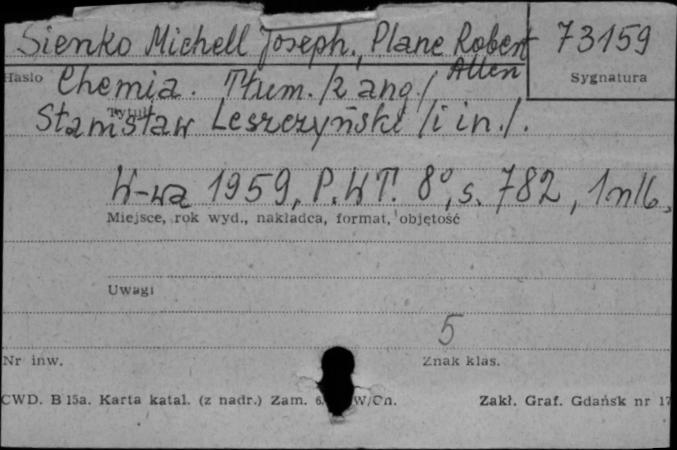 Sienko Michell Joseph., Plane Robert 73159
Hasło Allen Sygnatura
Chemia. Tłum. /z ang./
Tytuł
Stanisław Leszczyński /i in./.
W-wa 1959, P.WT. 8°, s. 782, 1 nlb,
Miejsce, rok wyd., nakładca, format, objętość
Uwagi
5
Nr inw. Znak klas.
CWD. B 15a. Karta katal. (z nadr.) Zam. Zakł. Graf. Gdańsk nr